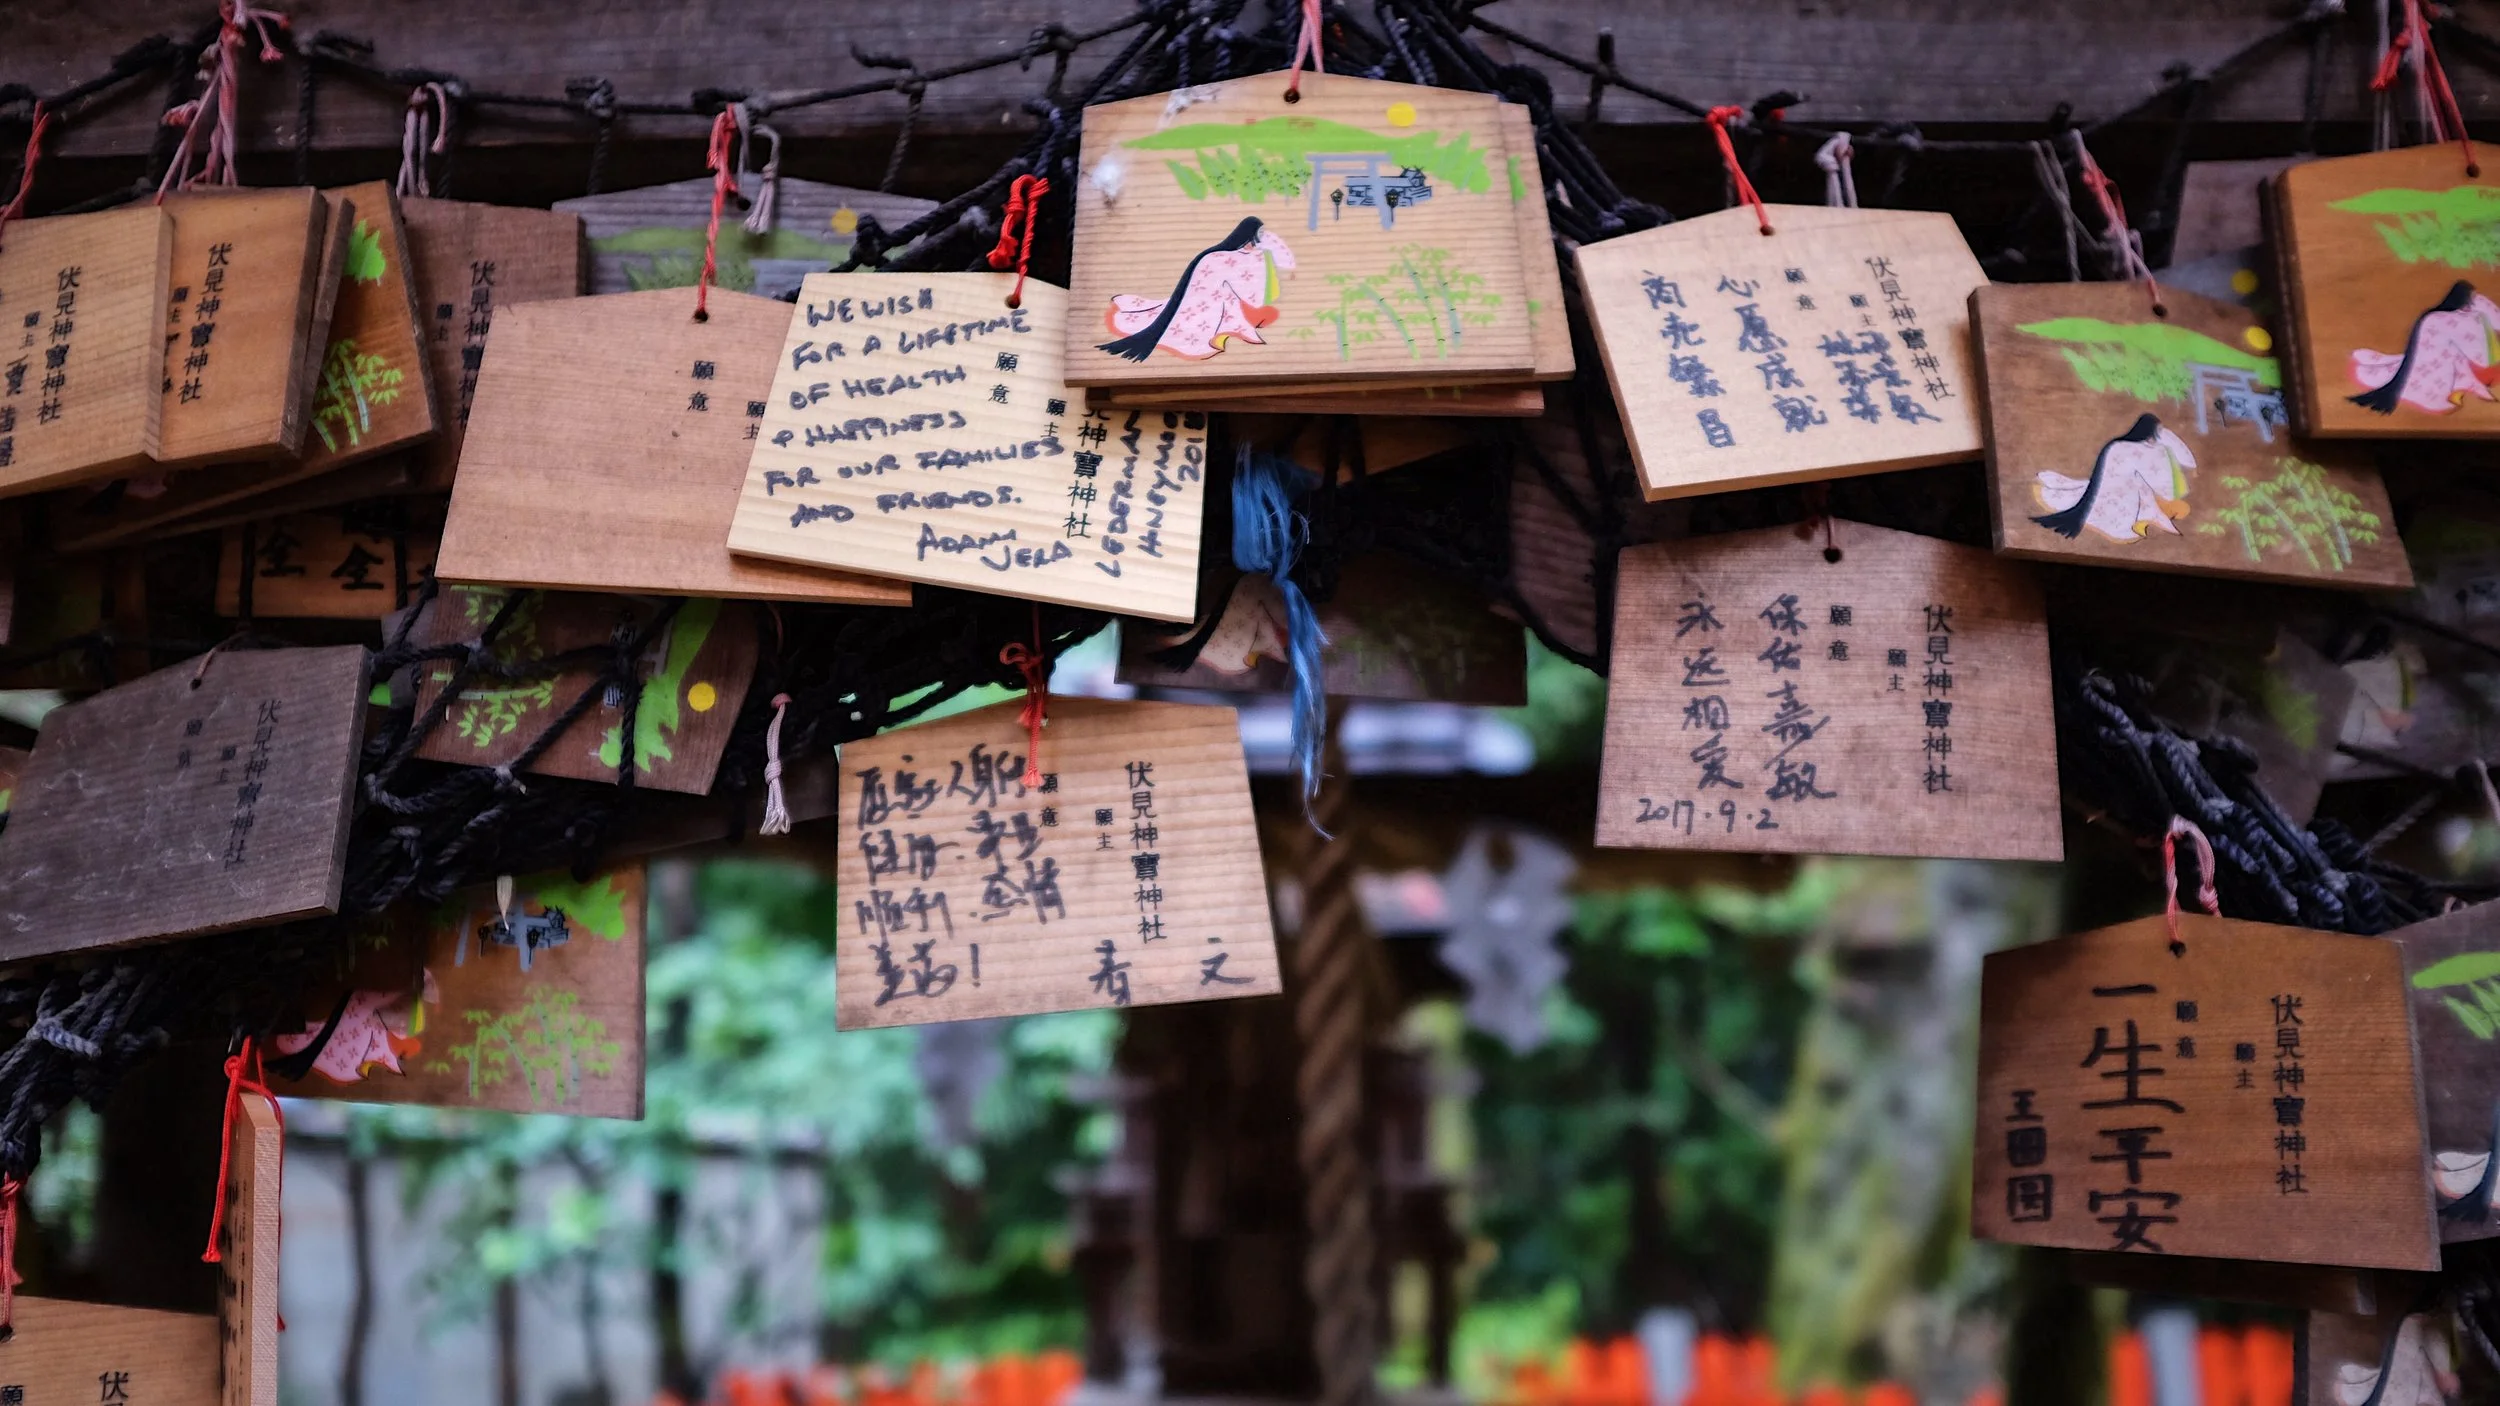 伏見神寶神社
願主
伏見神寶神社
願主
伏見神寶神社
願主
願意
願主
WE WISH
FOR A LIFETIME
OF HEALTH
& HAPPINESS
FOR OUR FAMILIES
AND FRIENDS.
ADAM
JENA
LEDERMAN
HONEYMOON
願意
願主
見神寶神社
伏見神寶神社
願主
願意
心愿成就
商売繁昌
伏見神寶神社
願主
願意
保佑嘉敏
永远相爱
2017.9.2
伏見神寶神社
願主
願意
伏見神寶神社
願主
願意
家人身体
健康
顺利
感情
美满!
文
伏見神寶神社
願主
願意
一生平安
全
全
伏
願